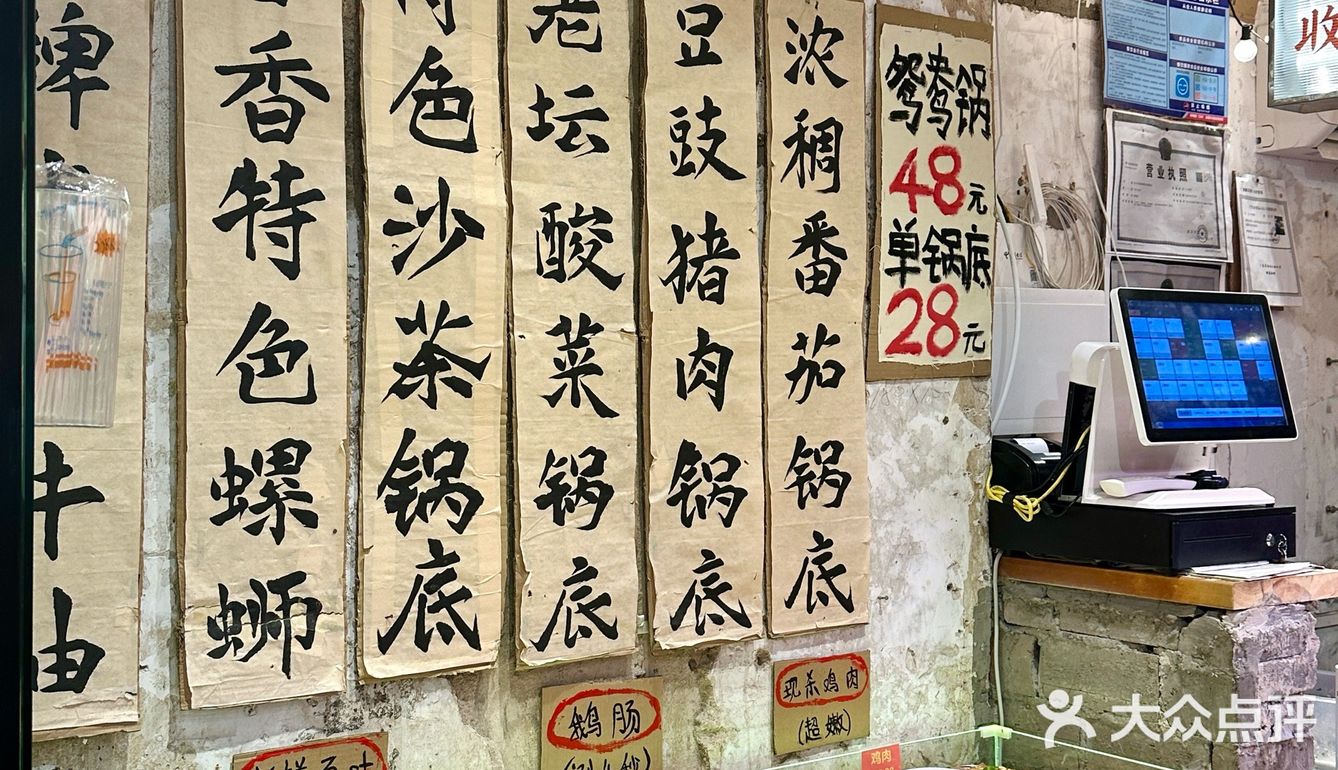 香特色螺蛳
色沙茶锅底
老坛酸菜锅底
豆豉猪肉锅底
浓稠番茄锅底
鸳鸯锅
48元
单锅底
28元
收
营业执照
牛油
鹅肠
现杀鸡肉
(超嫩)
鸡肉
大众点评